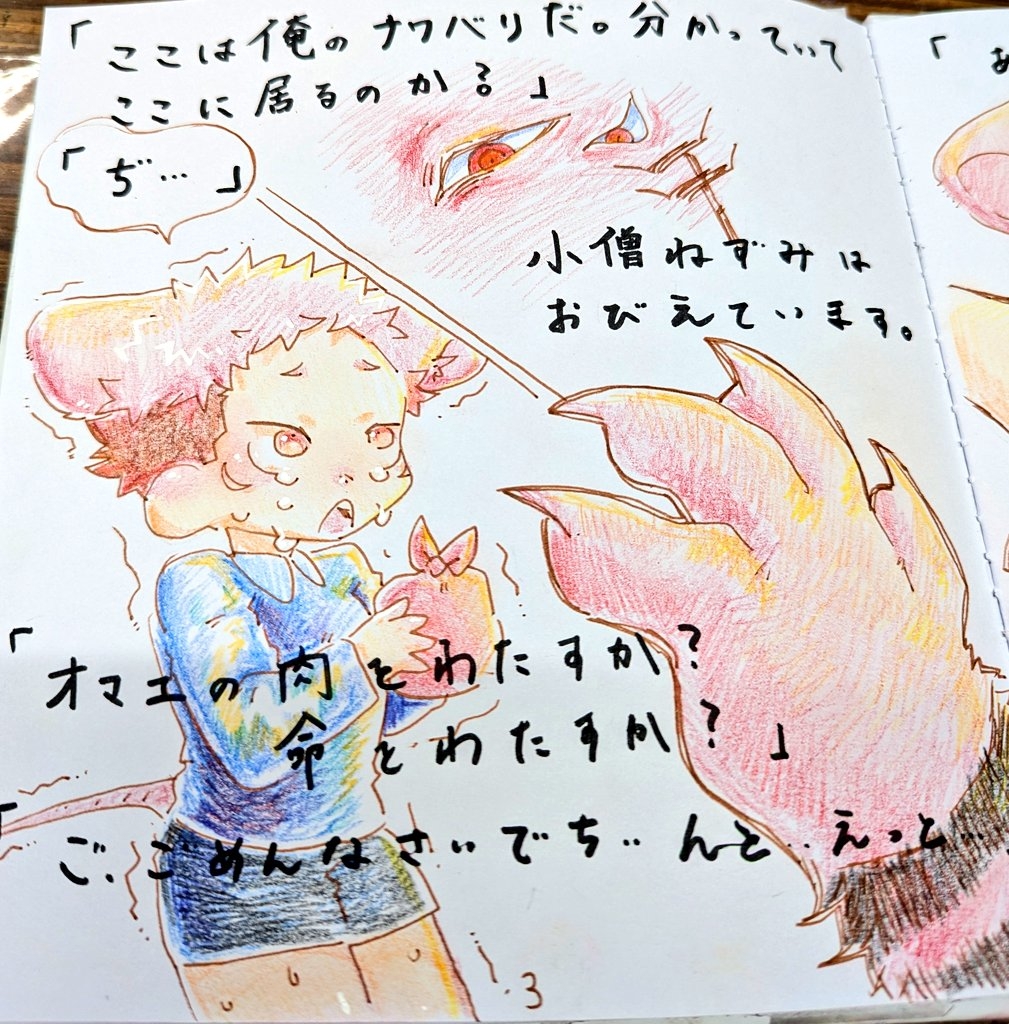 「ここは俺のナワバリだ。分かっていて
ここに居るのか?」
「ぢ…」
小僧ねずみは
おびえています。
「オマエの肉をわたすか?
命をわたすか?」
「ご、ごめんなさいでち‥んと‥えっと…
3
「あ